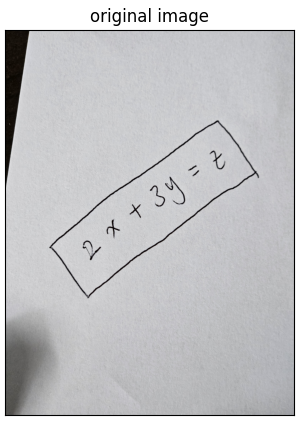 original image
2x + 3y = z